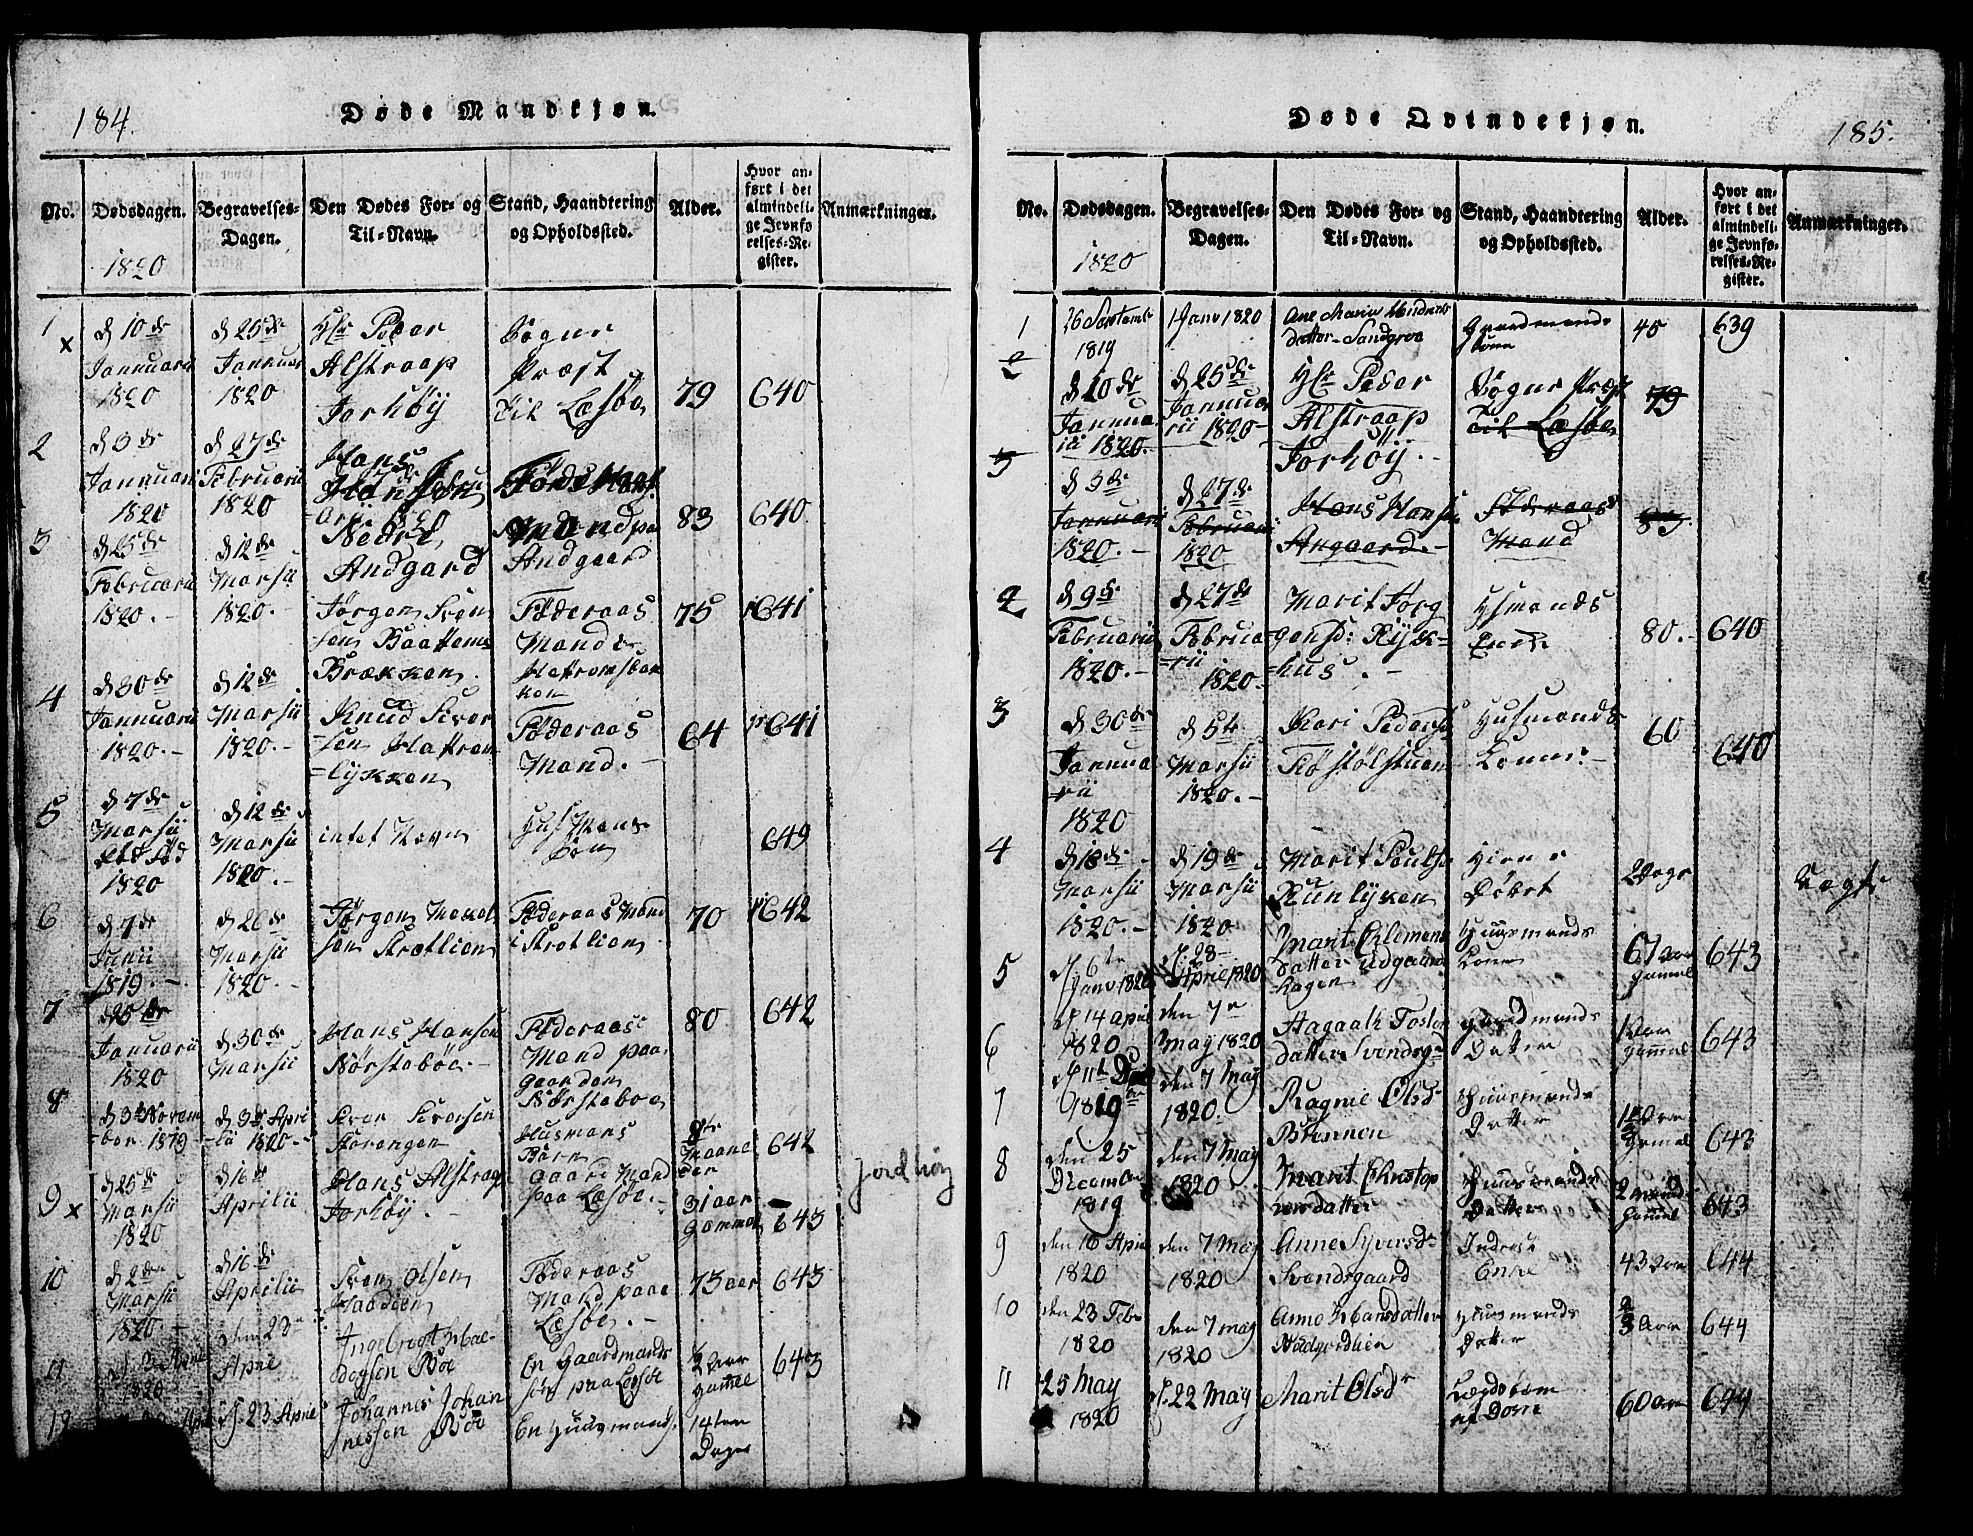 184.
Døde Mandkjøn.
No.
Dødsdagen.
1820
Begravelses-
Dagen.
Den Dødes For- og
Til-Navn.
Stand, Haandtering
og Opholdssted.
Alder.
Hvor an-
ført i det
almindeli-
ge Jevnfø-
relses-Re-
gister.
Anmærkninger.
1
x
d 10de
Jannuari
1820
d 25de
Jannuar
1820
Hr Peder
Alstraap
Jorhøy
Sogne
Præst
til Læsøe
79
640
2
d 3de
Jannuari
1820
d 27de
Februarii
1820
Hans
Hansen
Nedre
Andgard
Mand paa
Andgaard
83
640
3
d 25de
Februarii
1820.
d 12de
Marsii
1820.
Jørgen Iver
sen Baattem
Brækken.
Føderaas
Mand
75
641
4
d 30de
Januarii
1820.
d 12de
Marsii
1820.
Knud Iver
sen Hattrem
lykken
Føderaas
Mand.
64
641
5
d 7de
Marsii
1820
d 12de
Marsii
1820.
intet Navn
Husmans
Søn
649
6
d 7de
Junii
1819.
d 26de
Marsii
1820.
Jørgen
sen Strotlien
Føderaas Mand
i Strotlien
70
642
7
d 25de
Januarii
1820
d 30de
Marsii
Hans Hansen
Børstebøe.
Føderaas
Mand paa
gaarden
Børstebøe
80
642
8
d 3de Novem
ber 1819
d 3de Apri
lii 1820
Iver Iversen
Husmans
Barn
Maane
642
9 x
d 25de
Marsii
1820
d 16de
Aprilii
Hans Alstrap
Jorhøy.
Gaard Mand
paa Læsøe.
31 aar
Gammel
643
Jordhøy
10
d 2den
Marsii
1820
d 16de
Aprilii
Iver Olsen
Haadien
Føderaas
Mand paa
Læsøe.
73 aar
643
11
1820
den 23de
April
Ingebrigt
Bøe
En Gaardmands
søn paa Lesøe
1/2 Aar
gammel
643
12
d. 23 Aprie
Johannes Johan
nessen Bøe
En Huusmands
14ten
Dage
Døde Qvindekjøn.
185.
No.
Dødsdagen.
1820
Begravelses-
Dagen.
Den Dødes For- og
Til-Navn.
Stand, Haandtering
og Opholdssted.
Alder.
Hvor an-
ført i det
almindeli-
ge Jevnfø-
relses-Re-
gister.
Anmærkninger.
1
26 Septembr
1819
1 Janv 1820
Ane Maria
datter Sandgroe
Gaardmands
kone
45
639
2
d 10de
Jannua
rii 1820.
d 25de
Jannua
rii 1820
Hr Peder
Alstraap
Jorhøy.
Sogne Præst
til Læsøe
79
3
d 3de
Jannuarii
1820.
d 27de
Februarii
1820
Hans Hansen
Angaard.
Føderaas
Mand
83.
2
d 9de
Februarii
1820.
d 27de
Februa
rii
1820
Marit Jørg
ensd: Rysk
hus.
Husmands
Enke
80.
640
3
d 30de
Jannua
rii
1820
d 5te
Marsii
1820.
Kari Pedersd
Røstølstuen
Husmands
Konne
60
640
4
d 18de
Marsii
1820.
d 19de
Marsii
1820
Marit Poulsd
Runlyken
Hieme
Døbt
2 Dage
5
d. 6te
Janv 1820
d. 23
Aprie 1820
Marit Clemens
datter Udgaards
hagen
Huusmands
Kone
67 Aar
gammel
643
6
d 14 Aprie
1820
den 7de
May 1820
Aagaath Tosten
datter Svendsg
Huusmands
Datter
1 Aar
gammel
643
7
d. 11te
1819
den 7 May
1820.
Ragnie Olsd
Brennen
Huusmands
Datter
gamel
643
8
den 25
1819
den 7 May
1820
Marit Christop
hersdatter
Huusmands
Datter
2 maaned
gammel
643
9
den 16 Aprie
1820
den 7 May
1820
Anne Syversd
Svendsgaard
Inderst
Enke
43 Aar
644
10
den 23 Febr
1820
den 7 May
1820
Anne Hansdatter
Huusmands
Datter
Aar
644
11
25 May
1820
d. 22 May
Marit Olsdr
Lægdslem
af Dovre
60 Aar
644